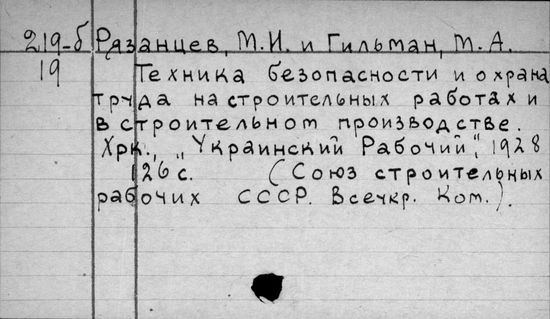 219-б Рязанцев, М.И. и Гильман, М.А.
19 Техника безопасности и охрана
труда на строительных работах и
в строительном производстве.
Хрк., „Украинский Рабочий", 1928
126 с. (Союз строительных
рабочих СССР. Всеукр. Ком.).